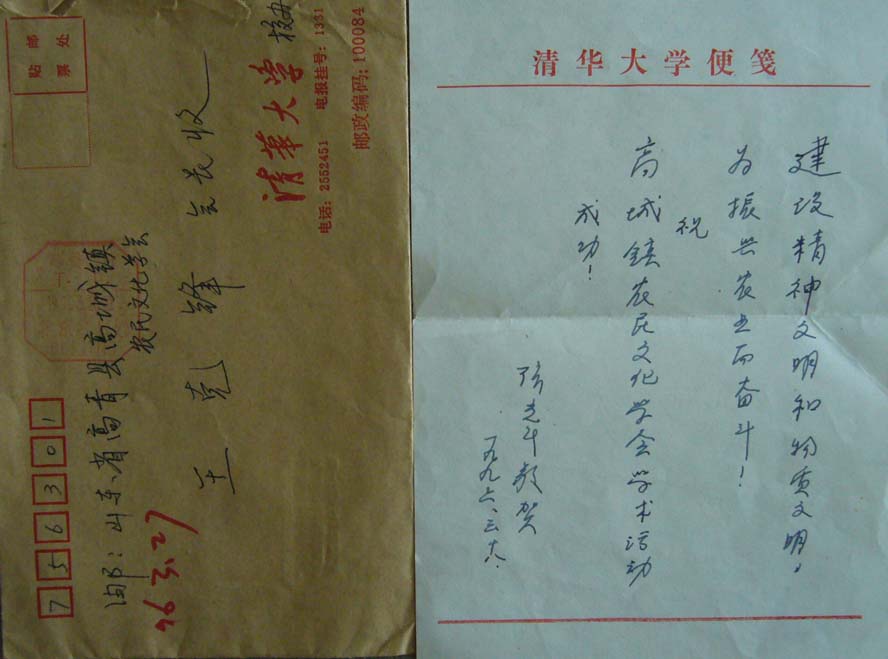 贴邮
票处
756301
邮：山东省高青县高城镇
农民文化学会
王克锋会长收
96.3.27
清华大学 校办
电话：2552451 电报挂号：1331
邮政编码：100084
清华大学便笺
建设精神文明和物质文明，
为振兴农业而奋斗！
祝
高城镇农民文化学会学术活动
成功！
张光斗敬贺
一九九六、三、十八、